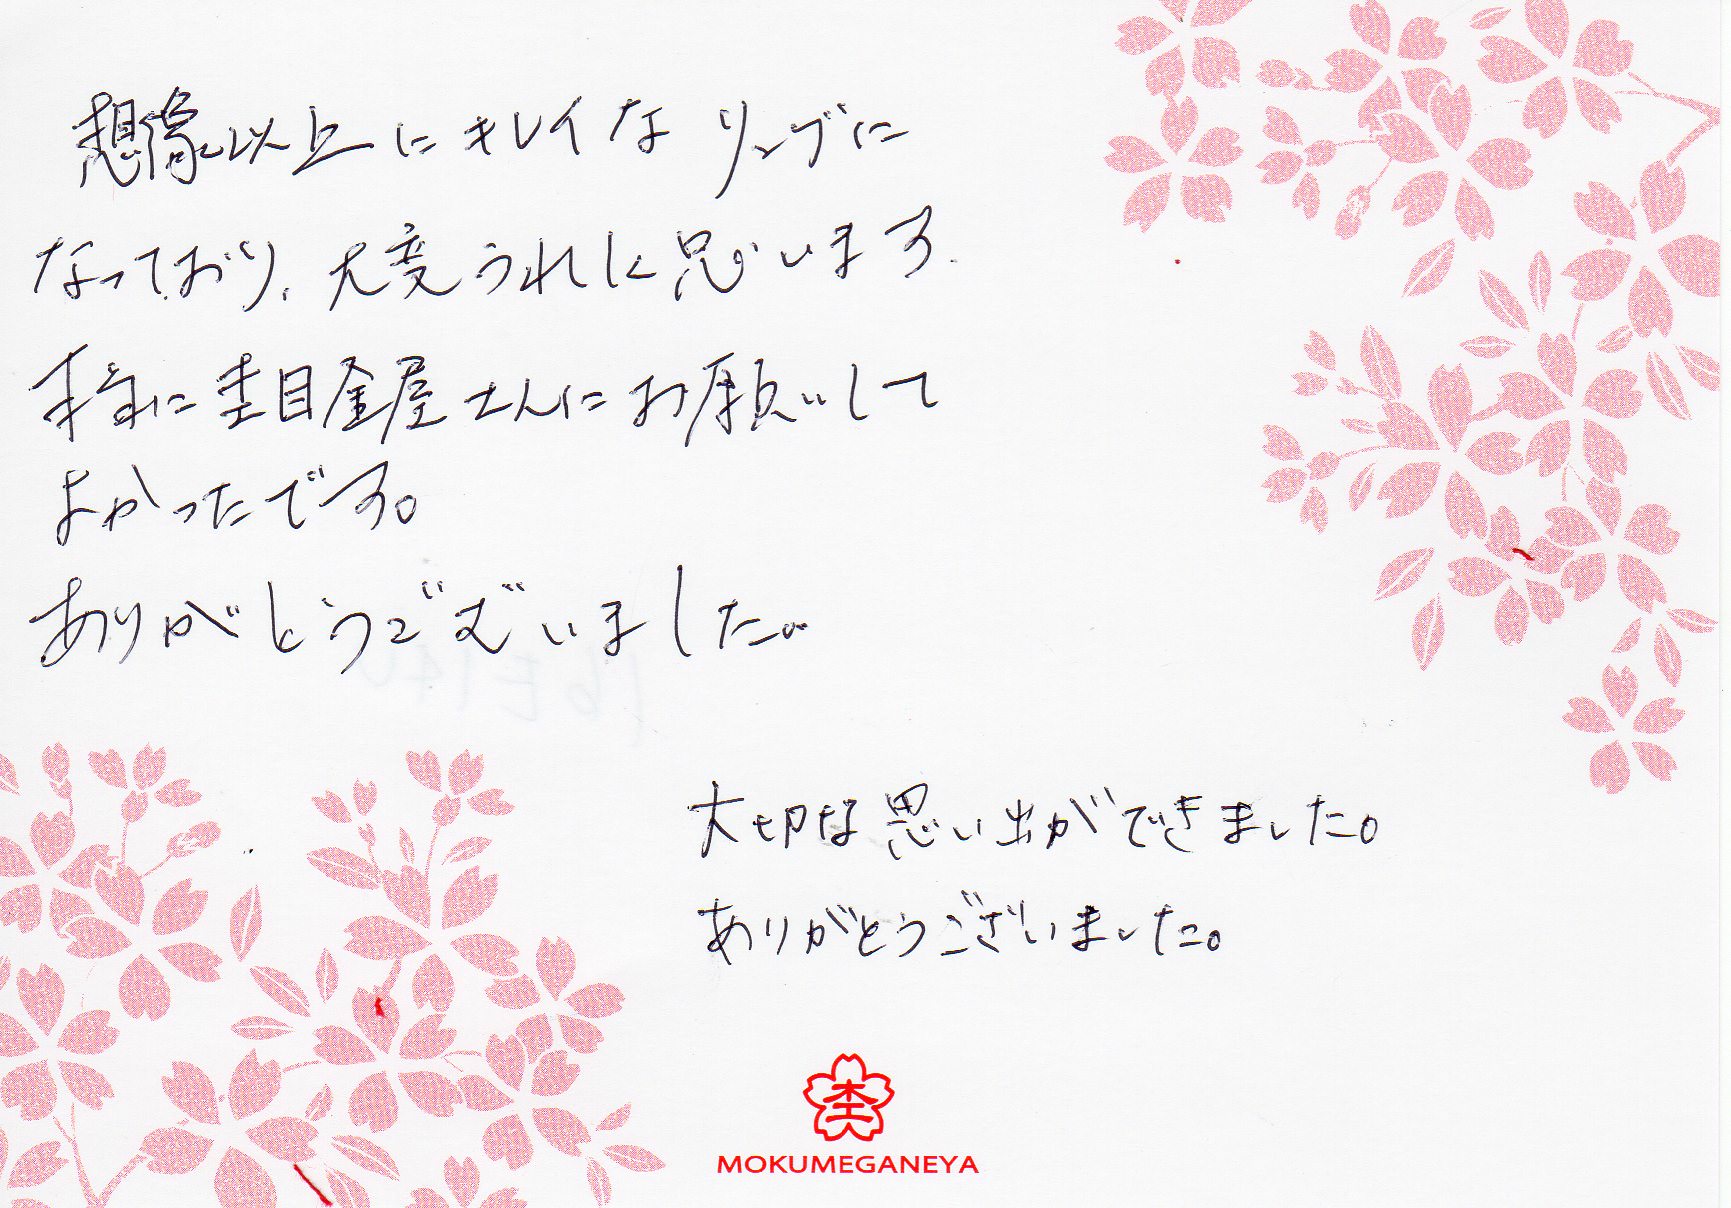 想像以上にキレイなリングに
なっており、大変うれしく思います.
本当に杢目金屋さんにお願いして
よかったです。
ありがとうございました。
大切な思い出ができました。
ありがとうございました。
杢
MOKUMEGANEYA